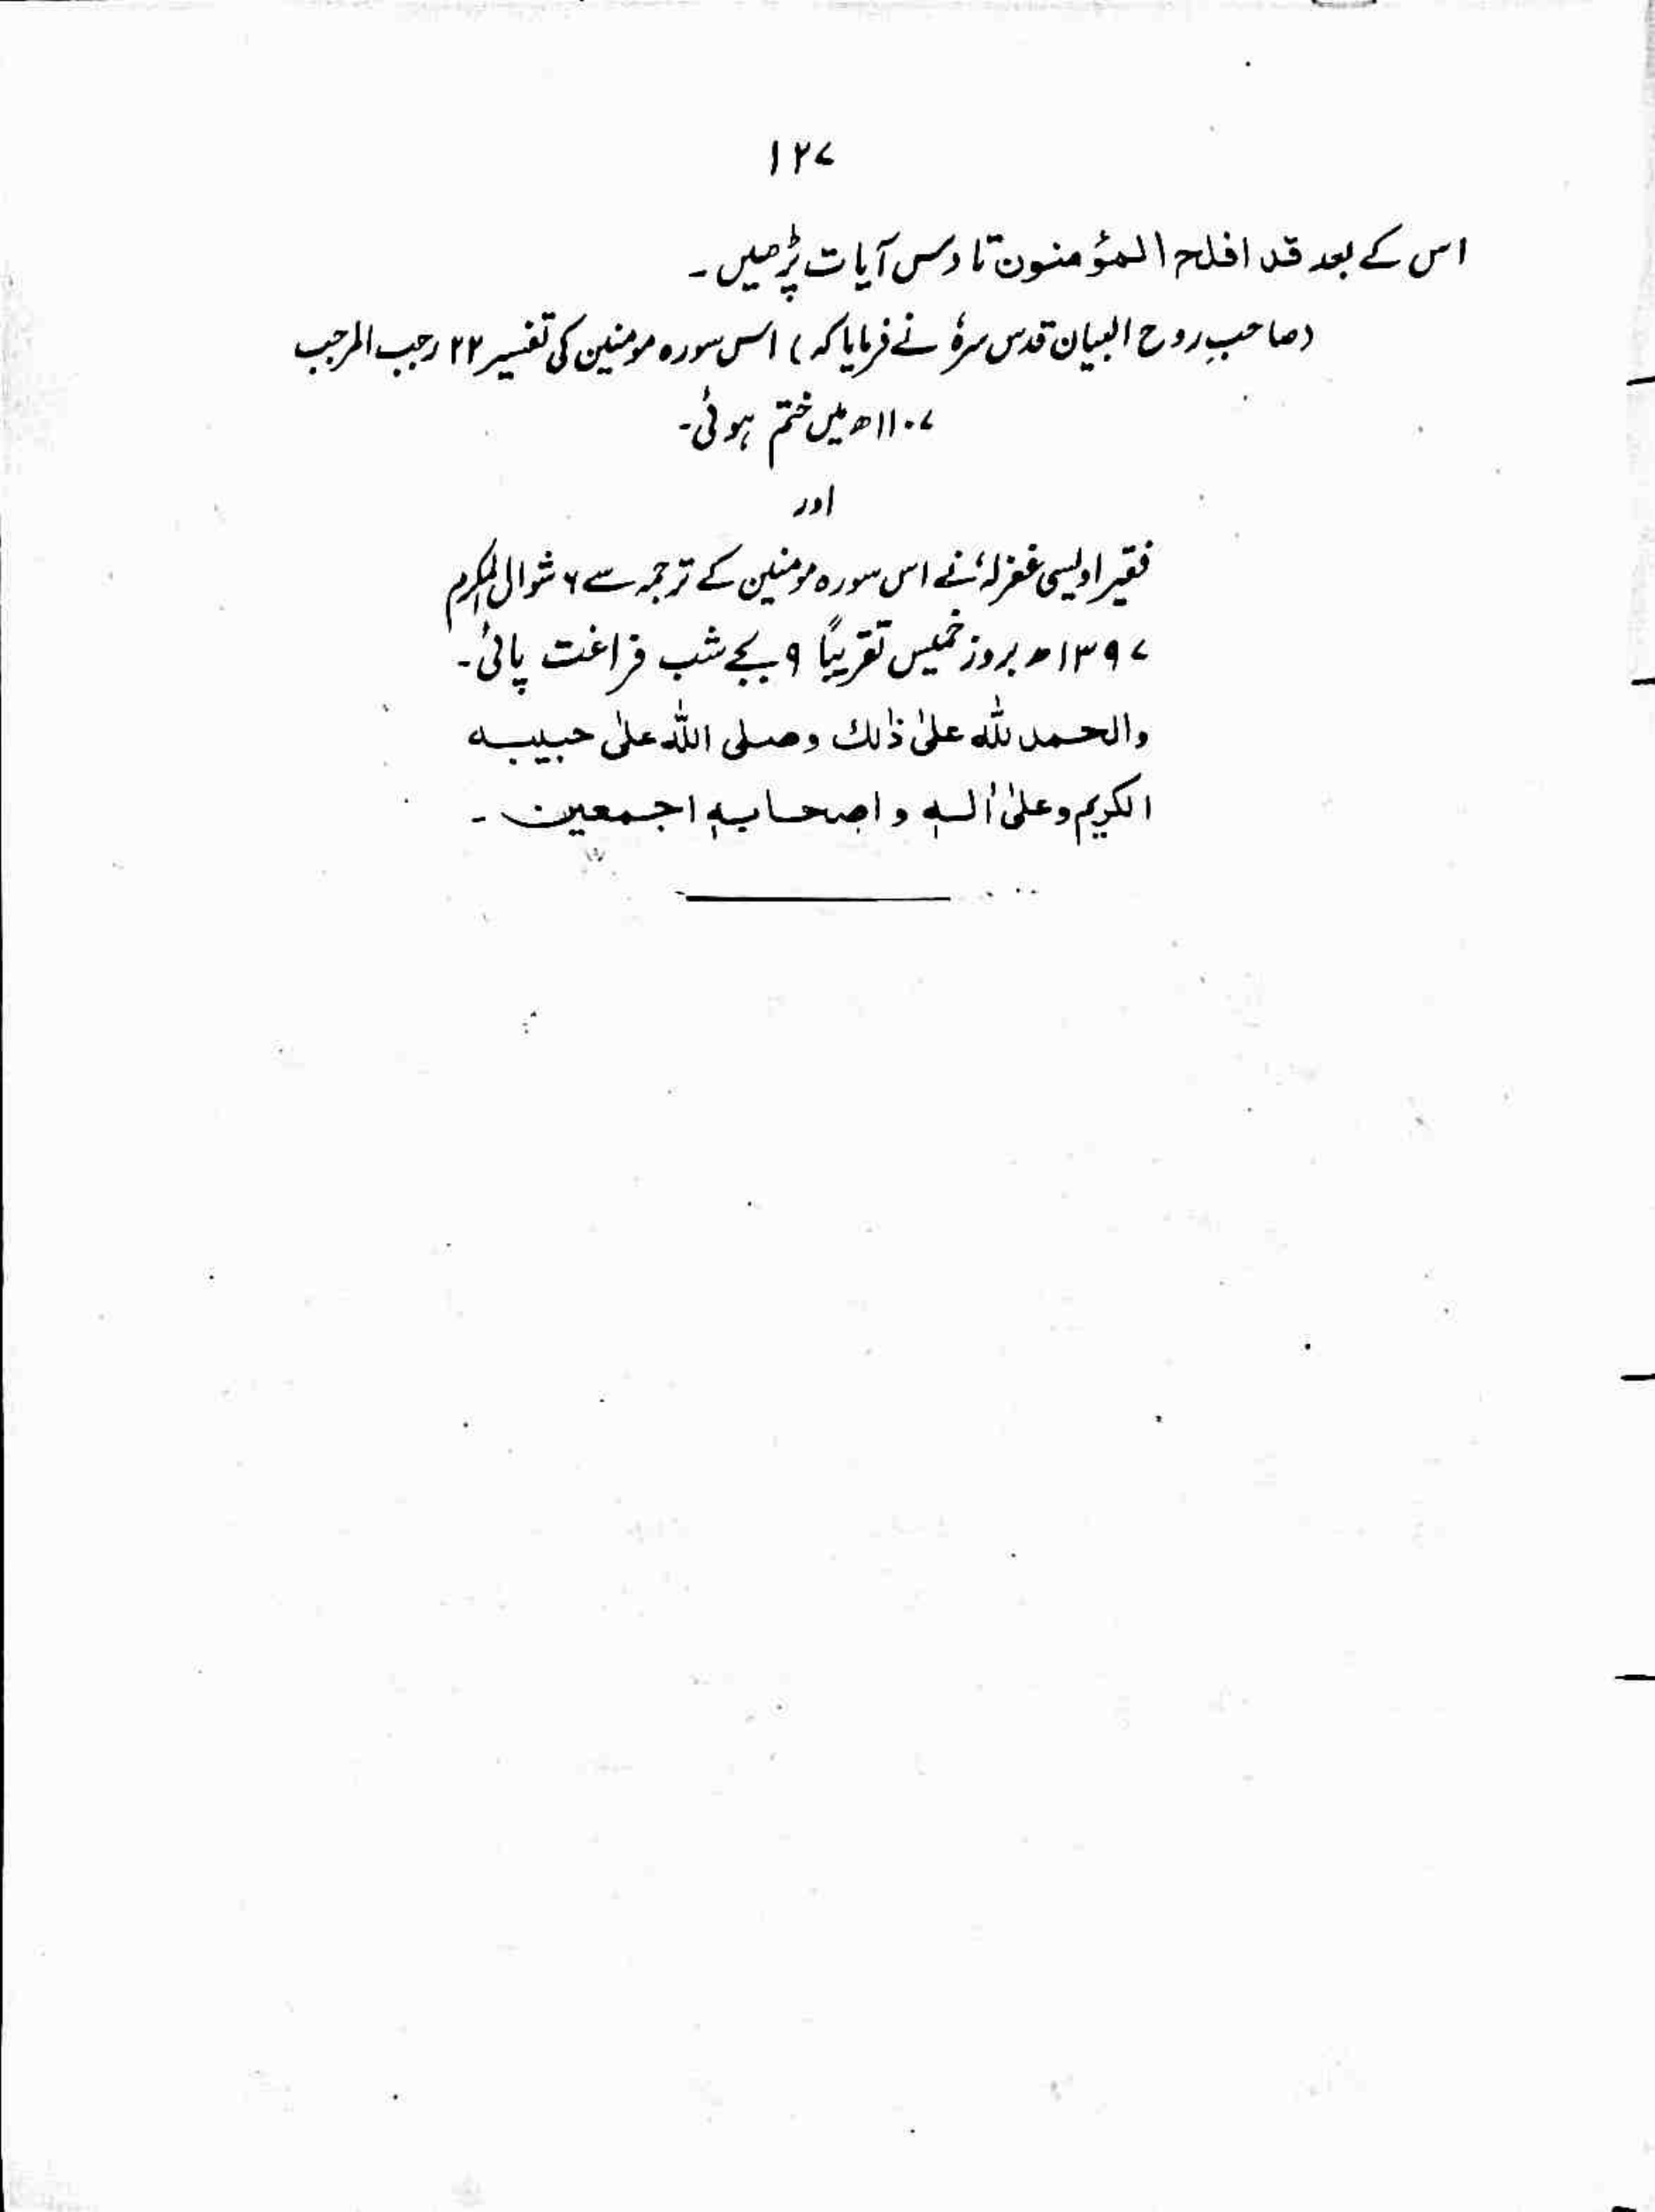 ۱۲۷
اس کے بعد قد افلح المؤمنون تا دس آیات پڑھیں۔
(صاحبِ روح البیان قدس سرہٗ نے فرمایا کہ) اس سورہ مومنین کی تفسیر ۲۲ رجب المرجب
۱۱۰۷ھ میں ختم ہوئی۔
اور
فقیر اویسی غفرلہٗ نے اس سورہ مومنین کے ترجمہ سے ۶ شوال المکرم
۱۳۹۷ھ بروز خمیس تقریباً ۹ بجے شب فراغت پائی۔
والحمد للّٰہ علیٰ ذٰلك وصلی اللّٰہ علیٰ حبیبہ
الکریم وعلیٰ اٰلہٖ واصحابہٖ اجمعین۔